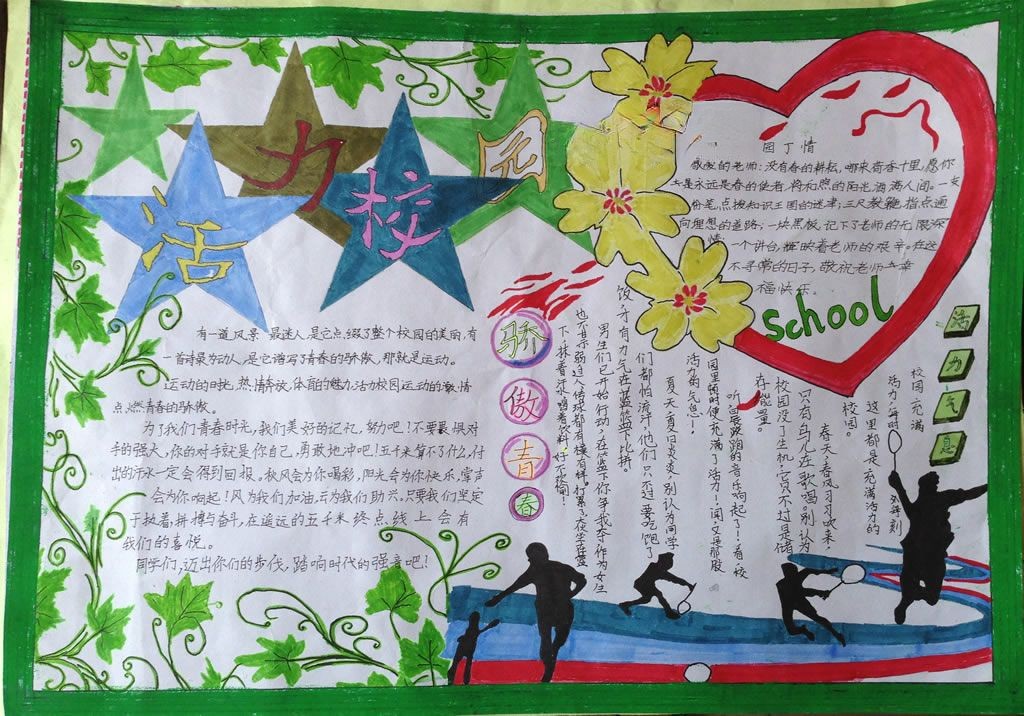 活力校园
园丁情
敬爱的老师:没有春的耕耘,哪来荷香十里,愿你
永是永远是春的使者,将和照的阳光洒满人间。一支
粉笔,点拨知识王国的迷津;三尺教鞭,指点通
向理想的道路;一块黑板,记下了老师的无限深
情;一个讲台,辉映着老师的艰辛。在这
不寻常的日子,敬祝老师
福快乐。
school
有一道风景 最迷人,是它点缀了整个校园的美丽,有
一首诗最为动人,是它谱写了青春的骄傲,那就是运动。
运动的日光,热情奔放,体育的魅力,活力校园,运动的激情
点燃青春的骄傲。
为了我们青春时光,我们美好的记忆,努力吧!不要畏惧对
手的强大,你的对手就是你自己,勇敢地冲吧!五千米算不了什么,付
出的汗水一定会得到回报。秋风会为你喝彩,阳光会为你快乐,掌声
会为你响起!风为我们加油,云为我们助兴。只要我们坚定
于执着,拼搏与奋斗,在遥远的五千米终点线上会有
我们的喜悦。
同学们,迈出你们的步伐,踏响时代的强音吧!
骄傲青春
活力气息
校园充满
活力,每时
每刻
这里都是充满活力的
校园。
春天,春风习习吹来,
只有鸟儿在歌唱。别认为
校园没了生机,它只不过是储
存能量。
听!晨跑的音乐响起了!看,校
园里顿时便充满了活力!闻,又是那股
活力的气息!
夏天,夏日炎炎,别认为同学
们都怕流汗,他们只不过要吃饱了
饭,才有力气在篮筐下比拼。
男生们已开始行动,在篮下你争我夺,作为女生
也不甘示弱,
下,抹着汗,喝着饮料,好不欢愉!